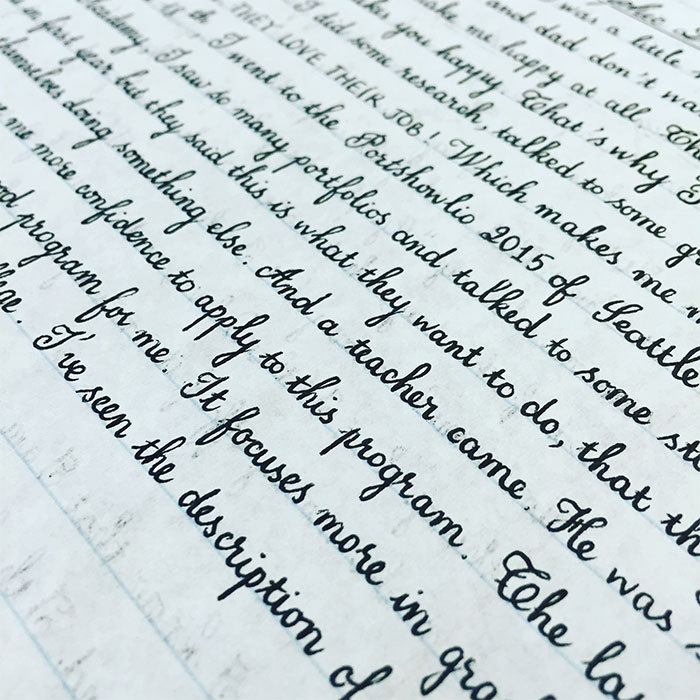 was a little
and dad don't
make me happy at all
you happy. That's why I
I did some research, talked to some
THEY LOVE THEIR JOB! Which makes me
I went to the Portshowlio 2015 of Seattle
I saw so many portfolios and talked to some
in first year but they said this is what they want to do, that
themselves doing something else. And a teacher came. He was
me more confidence to apply to this program. The
program for me. It focuses more in
I've seen the description of